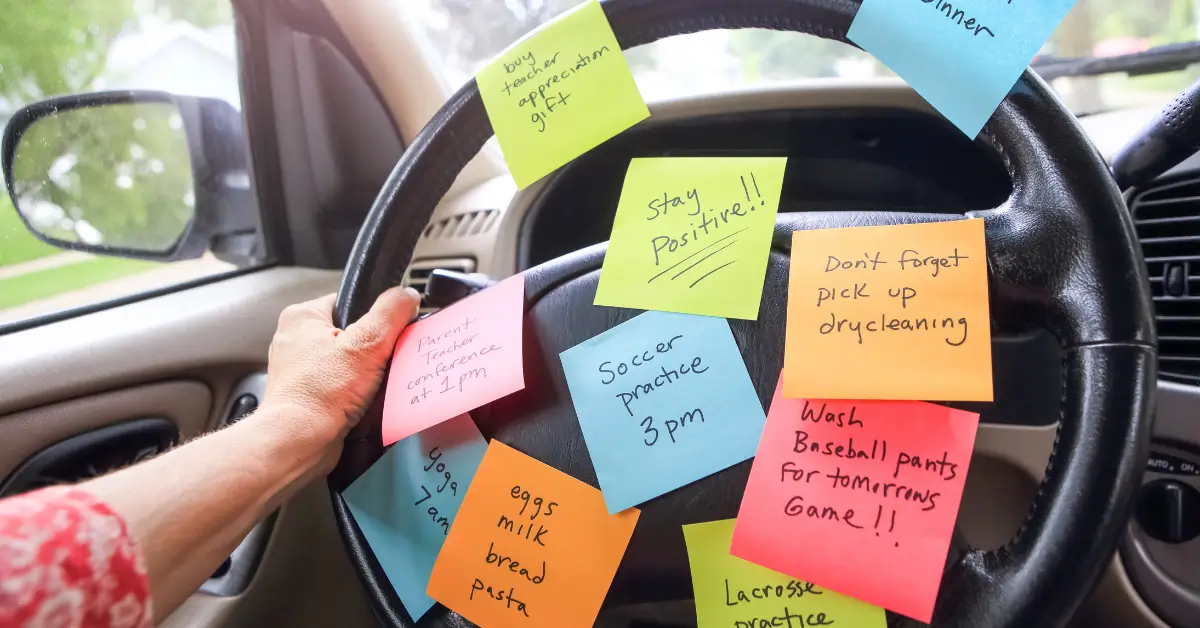 buy
teacher
appreciation
gift
Dinner
Stay
Positive!!
Don't forget
pick up
drycleaning
Parent
Teacher
conference
at 1pm
Soccer
practice
3pm
Wash
Baseball pants
for tomorrows
Game!!
Yoga
7am
eggs
milk
bread
pasta
Lacrosse
practice
AUTO
ON